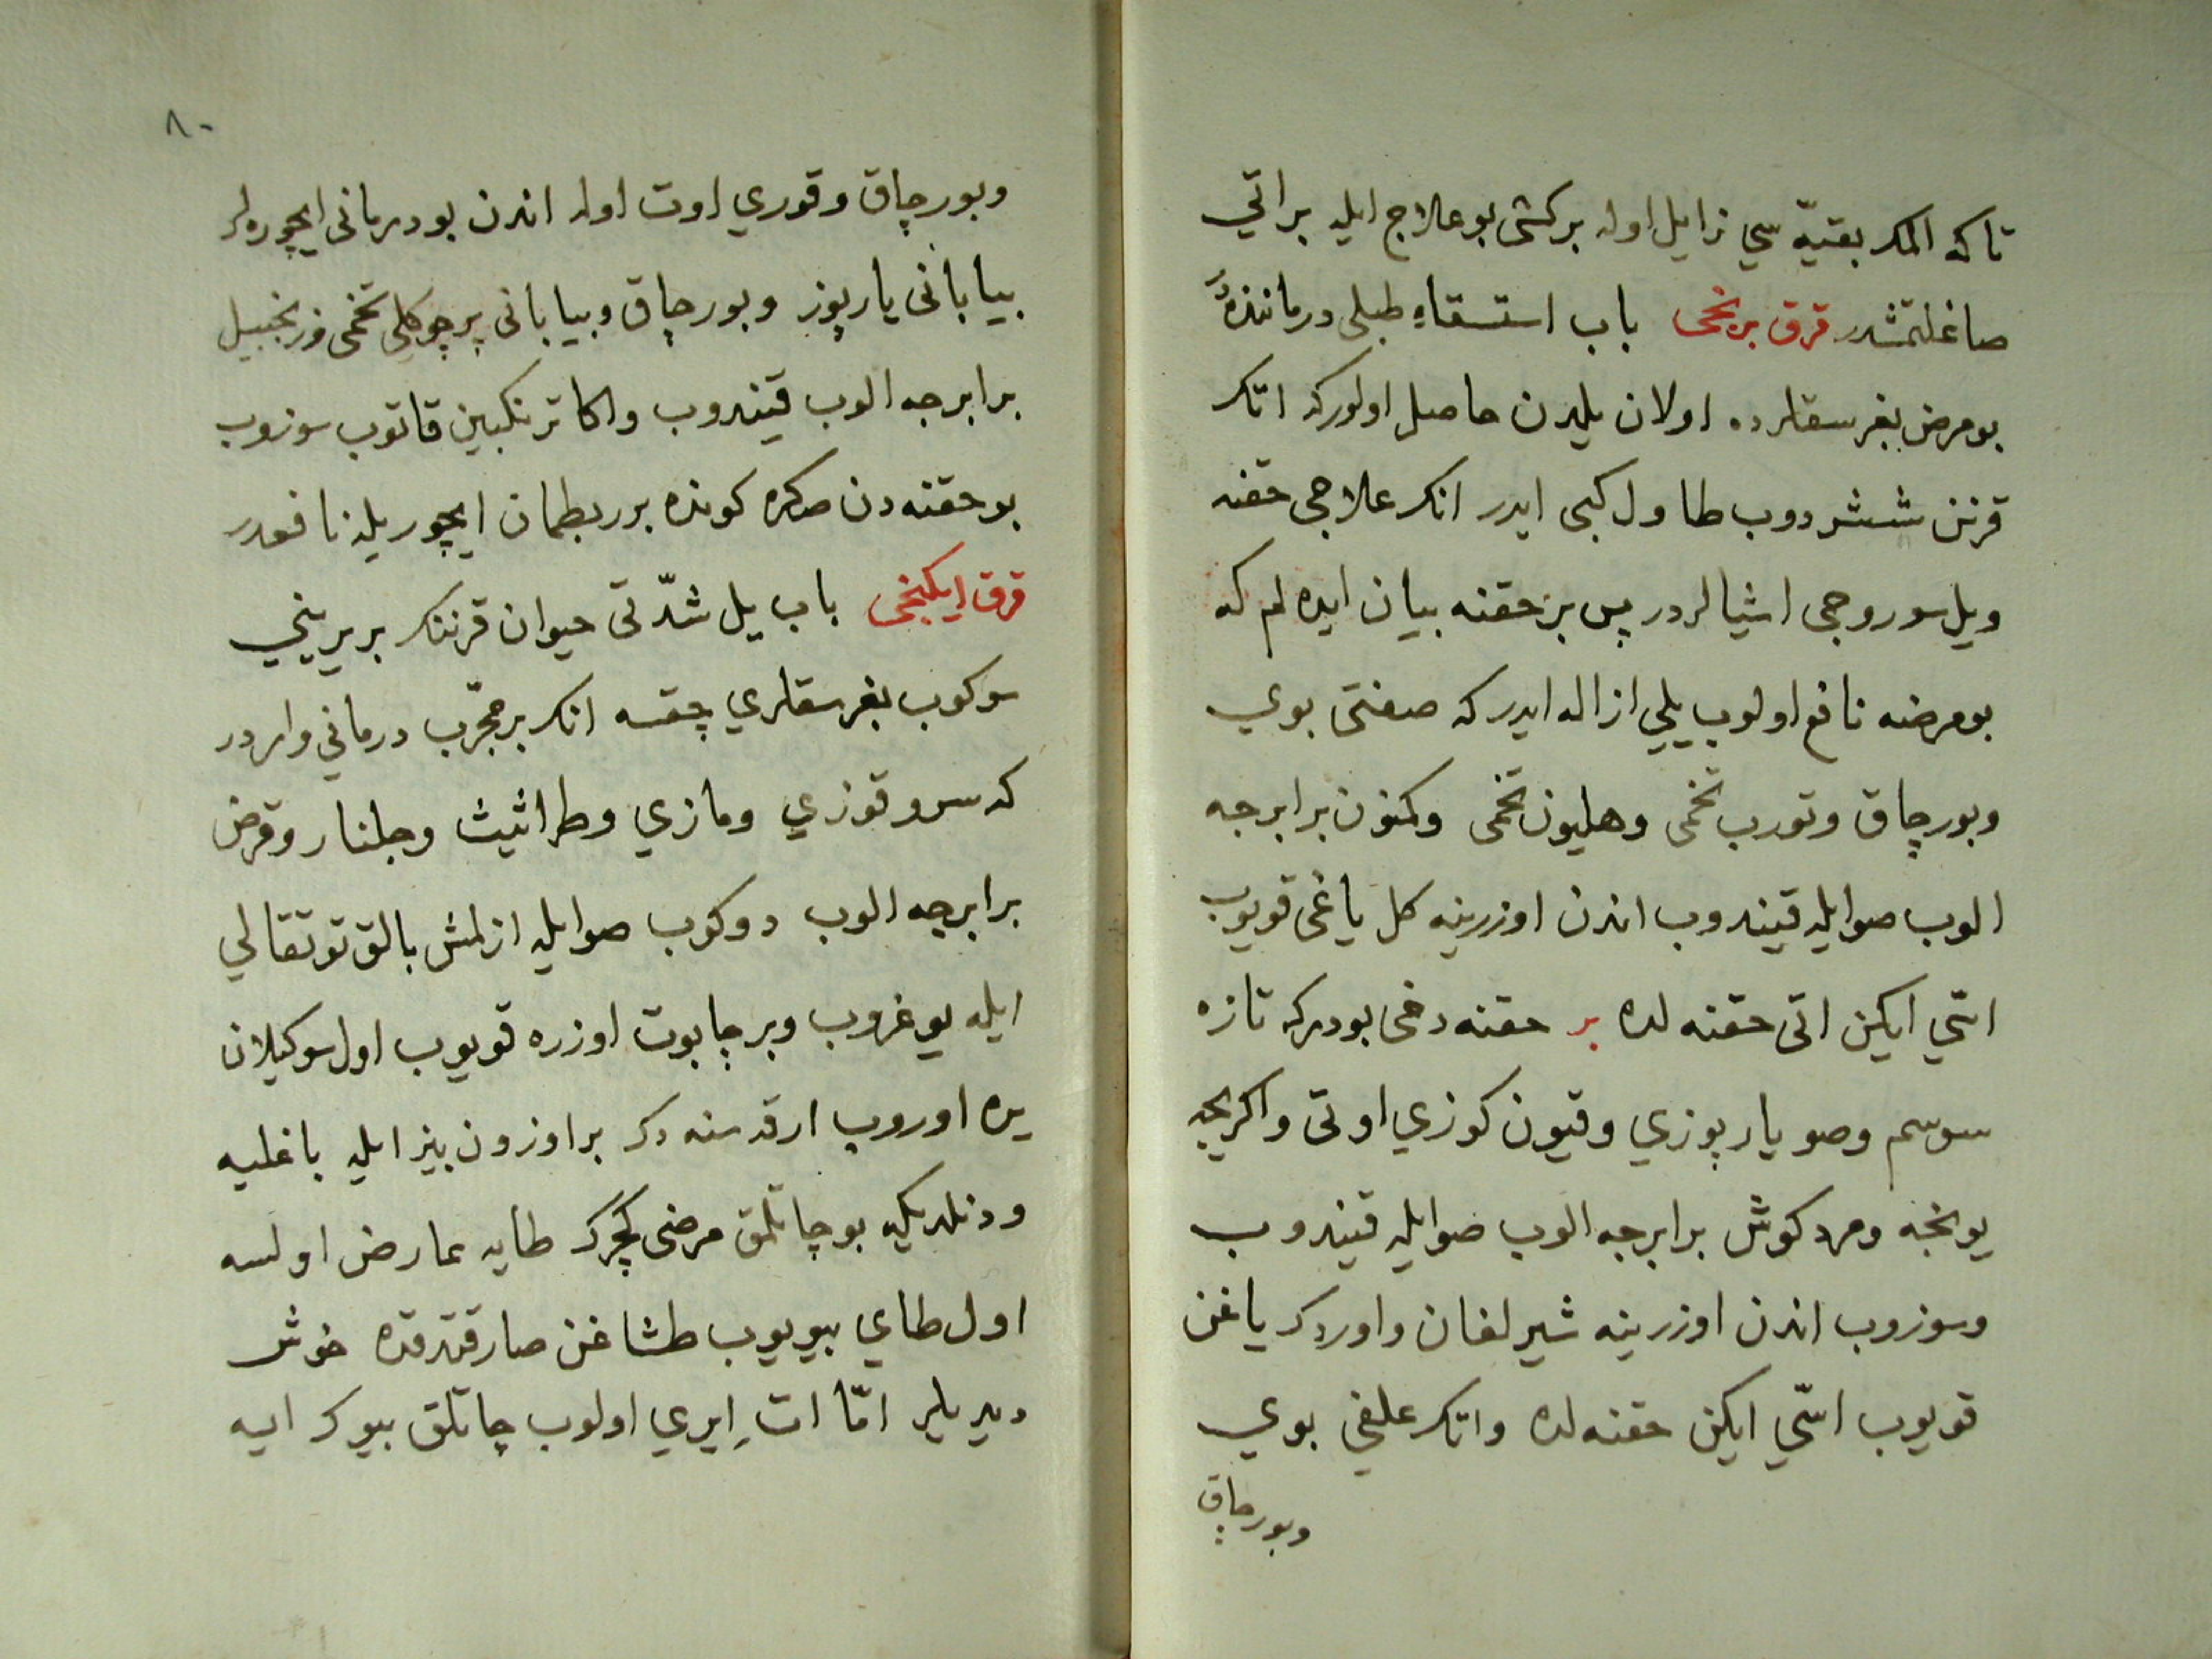 تاكه المك بقيّه سي زايل اوله بركشى بو علاج ايله بر اتي
صاغلتمشدر قرق برنجى باب استسقاءِ طبلى درماننده
بو مرض بغرسقلرده اولان يلدن حاصل اولور كه اتك
قرنن ششردوب طاول كبى ايدر انك علاجى حقنه
ويل سوروجى اشيالردر پس بر حقنه بيان ايده لم كه
بو مرضه نافع اولوب يلي ازاله ايدر كه صفتى بوي
وبورچاق وتورب تخمى وهليون تخمى وكمون برابرجه
الوب صو ايله قينادوب اندن اوزرينه كل ياغى قويوب
اسّي ايكن اتى حقنه لده بر حقنه دخى بودر كه تازه
سوسم وصو يارپوزي وقيون كوزي اوتى واكريجه
يونجه ومردكوش برابرجه الوب صو ايله قيندوب
وسوزوب اندن اوزرينه شيرلغان واوردك ياغن
قويوب اسّي ايكن حقنه لده واتك علفي بوي
وبورچاق
٨٠
وبورچاق وقوري اوت اوله اندن بو درمانى ايچوره لر
بيابانى يارپوز وبورچاق وبيابانى پرچوكلى تخمى وزنجبيل
برابرجه الوب قيندوب واكا ترنكبين قاتوب سوزوب
بو حقنه دن صكره كونده برر بطمان ايچوريله نافعدر
قرق ايكنجى باب يل شدّتى حيوان قرننك بر يريني
سوكوب بغرسقلري چقسه انك بر مجرّب درماني واردر
كه سرو قوزي ومازي وطراثيث وجلنار وقرض
برابرجه الوب دوكوب صو ايله ازلمش بالق توتقالي
ايله يوغروب وبر چاپوت اوزره قويوب اول سوكيلان
يره اوروب ارقه سنه دك بر اوزون بيز ايله باغليه
ودنلديكه بو چاتلمق مرضى كچرك طايه عارض اولسه
اول طاي بيويوب طشاغن صارقتدقده خوش
ديديلر امّا ات ايري اولوب چاتلق بيوك ايسه